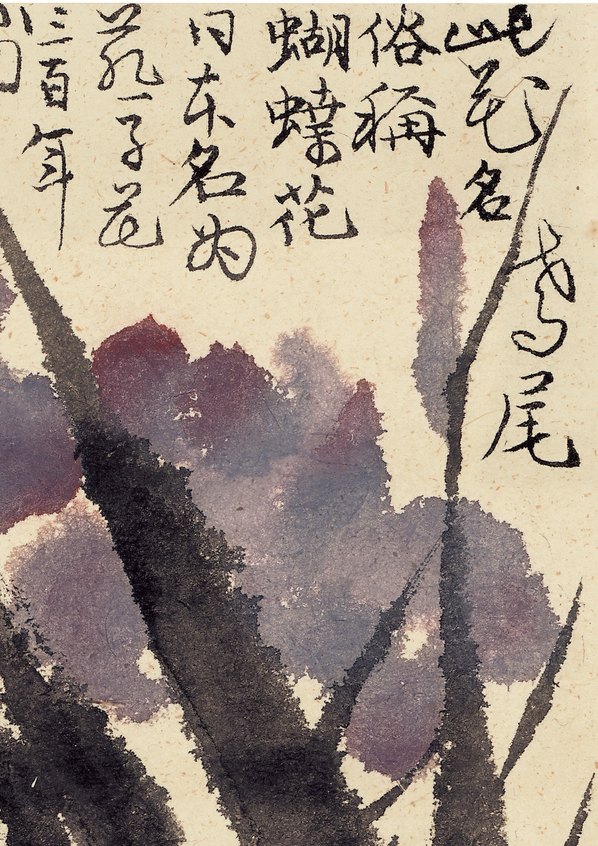 此花名
鸢尾
俗稱
蝴蝶花
日本名为
子花
三百年